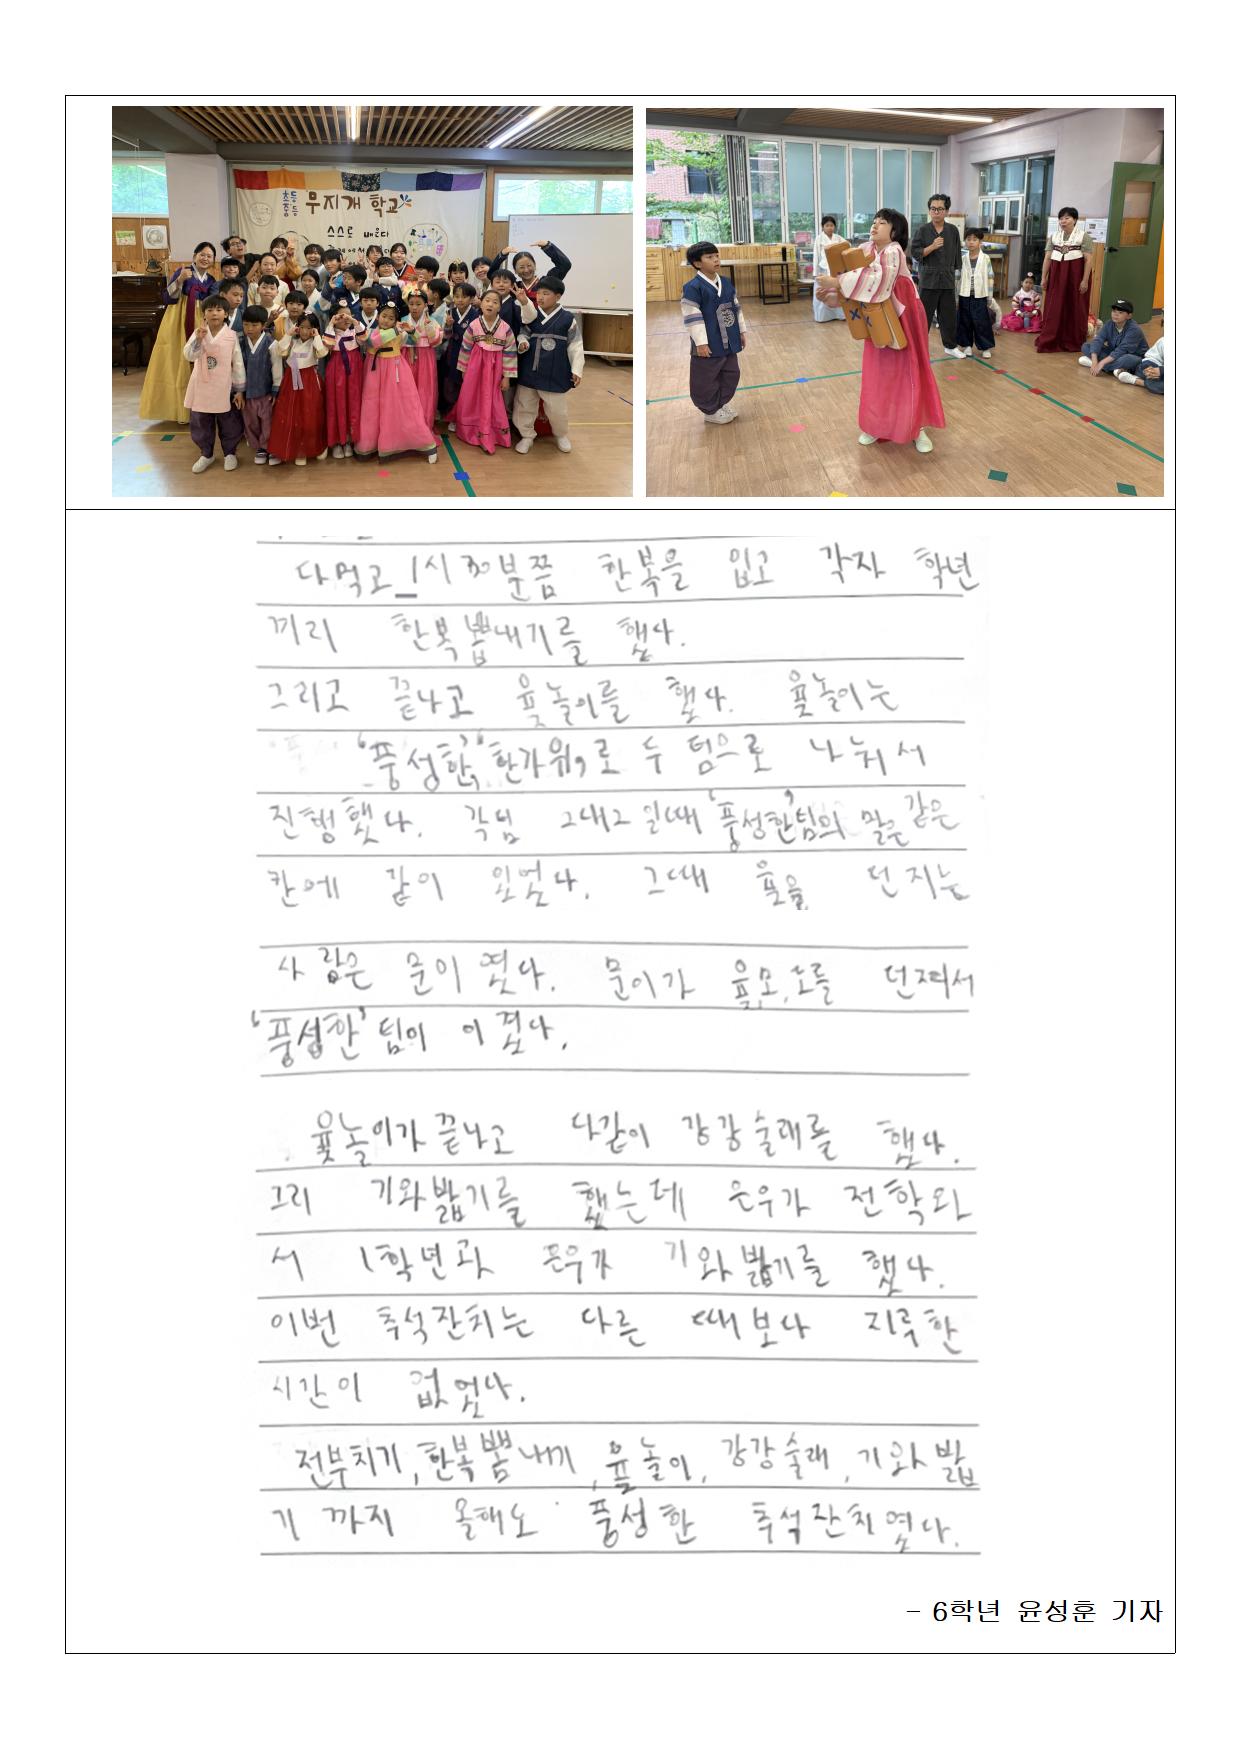 초등
중등 무지개 학교
스스로 배운다
다먹고 1시 30분쯤 한복을 입고 각자 학년
끼리 한복뽑내기를 했다.
그리고 끝나고 윷놀이를 했다. 윷놀이는
'풍성한', '한가위'로 두 팀으로 나눠서
진행했다. 각팀 그대그일때 '풍성한'팀의 말은 같은
칸에 같이 있었다. 그때 윷을 던지는
사람은 문이였다. 문이가 윷,모,도를 던져서
'풍성한' 팀이 이겼다.
윷놀이가 끝나고 다같이 강강술래를 했다.
그리 기와밟기를 했는데 은우가 전학와
서 1학년과 은우가 기와밟기를 했다.
이번 추석잔치는 다른 때보다 지루한
시간이 없었다.
전부치기, 한복뽐내기, 윷놀이, 강강술래, 기와밟
기 까지 올해도 풍성한 추석잔치였다.
- 6학년 윤성훈 기자